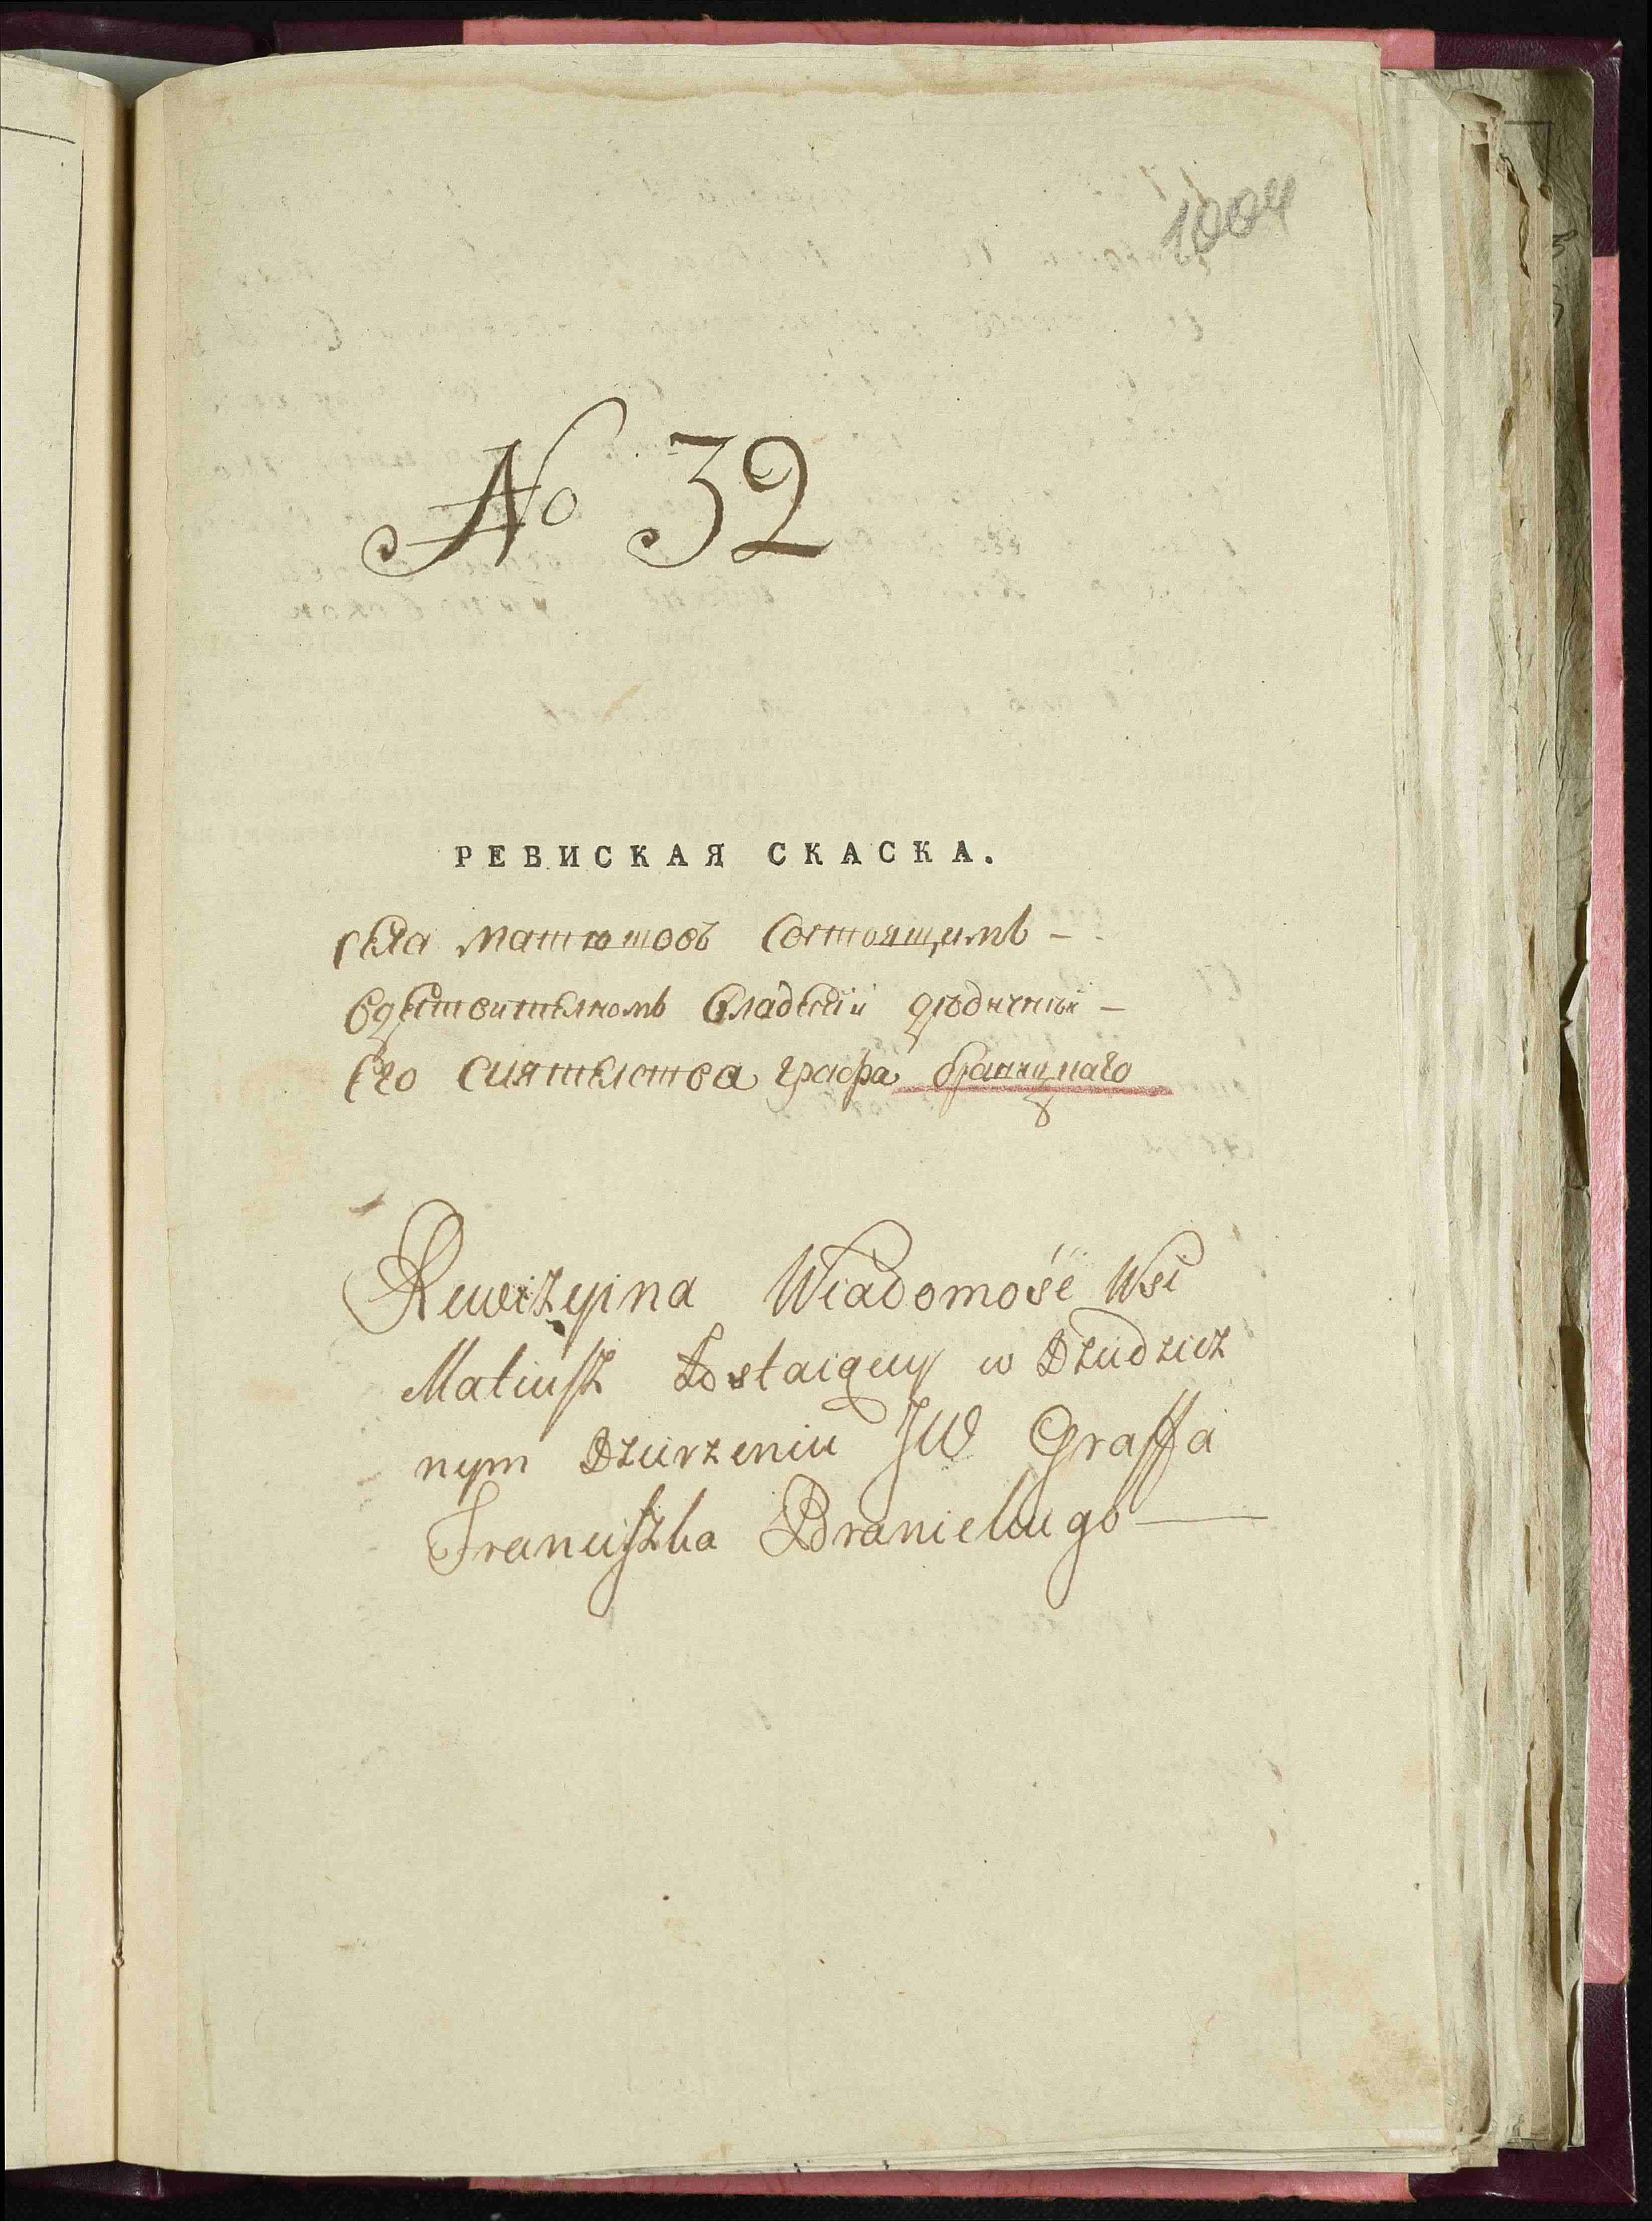 1004
No 32
РЕВИСКАЯ СКАСКА.
села матюшовъ состоящимъ -
вдействителномъ владении дѣдичным -
Его сиятелства графа браницкаго
Rewizyina Wiadomość Wsi
Matiusz Zostaiącey w Dziedzicz
nym Dzierzeniu JW Graffa
Franciszka Branickiego